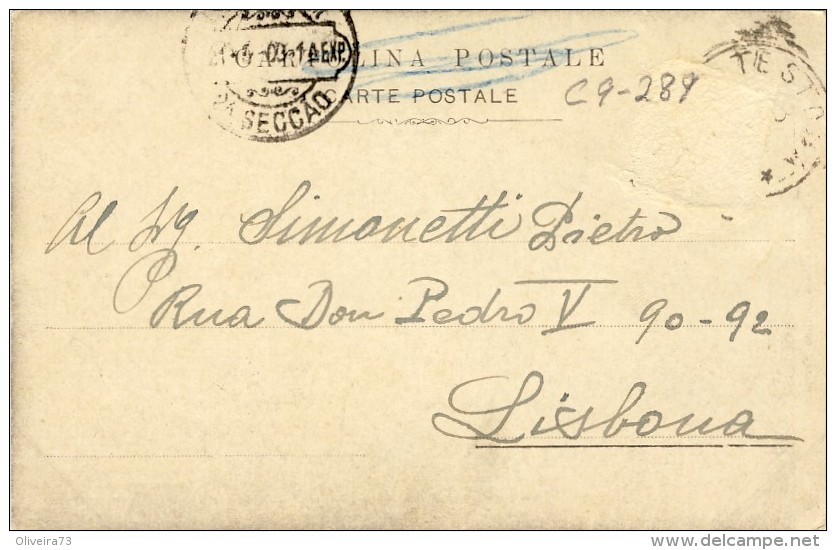 CARTOLINA POSTALE
CARTE POSTALE
C9-289
1ªEXP.
SECCÃO
Al Sig. Simonetti Pietro
Rua Don Pedro V 90-92
Lisbona
Oliveira73
www.delcampe.net